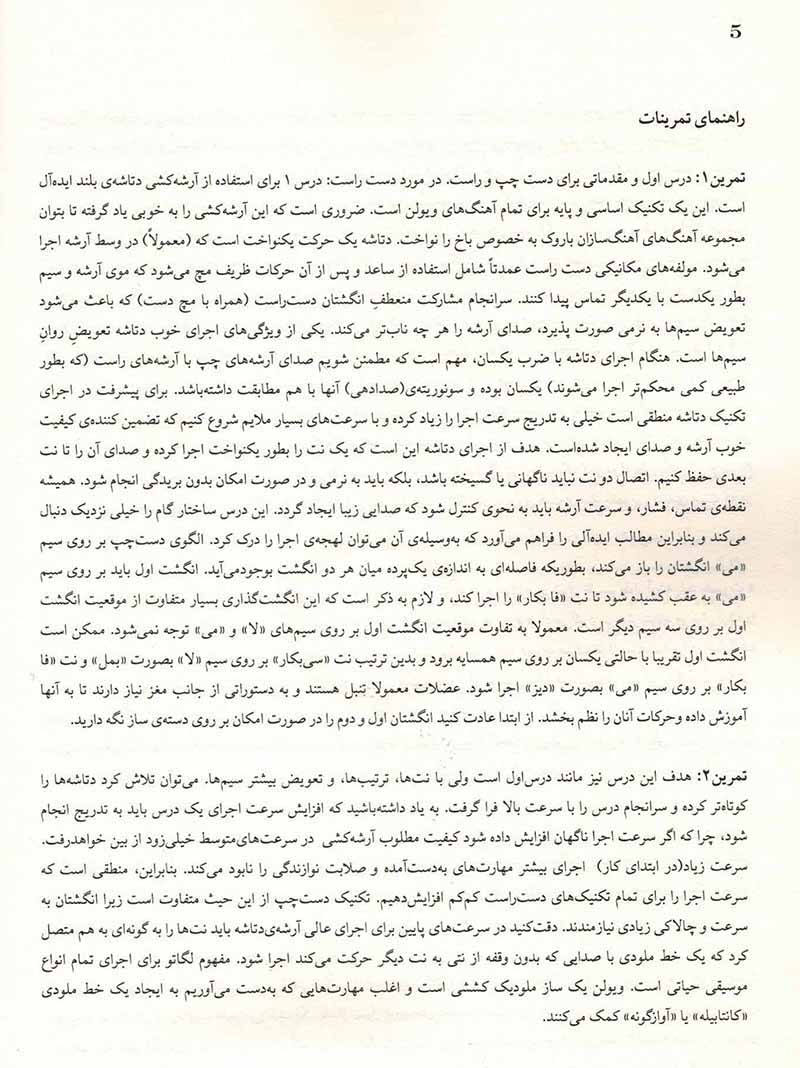 5
راهنمای تمرینات
تمرین۱: درس اول و مقدماتی برای دست چپ و راست. در مورد دست راست: درس ۱ برای استفاده از آرشه‌کشی دتاشه‌ی بلند ایده‌آل
است. این یک تکنیک اساسی و پایه برای تمام آهنگ‌های ویولن است. ضروری است که این آرشه‌کشی را به خوبی یاد گرفته تا بتوان
مجموعه آهنگ‌های آهنگ‌سازان باروک به خصوص باخ را نواخت. دتاشه یک حرکت یکنواخت است که (معمولاً) در وسط آرشه اجرا
می‌شود. مولفه‌های مکانیکی دست راست عمدتاً شامل استفاده از ساعد و پس از آن حرکات ظریف مچ می‌شود که موی آرشه و سیم
بطور یکدست با یکدیگر تماس پیدا کنند. سرانجام مشارکت منعطفِ انگشتان دست‌راست (همراه با مچ دست) که باعث می‌شود
تعویض سیم‌ها به نرمی صورت پذیرد، صدای آرشه را هر چه ناب‌تر می‌کند. یکی از ویژگی‌های اجرای خوب دتاشه تعویضِ روانِ
سیم‌ها است. هنگام اجرای دتاشه با ضرب یکسان، مهم است که مطمئن شویم صدای آرشه‌های چپ با آرشه‌های راست (که بطور
طبیعی کمی محکم‌تر اجرا می‌شوند) یکسان بوده و سونوریته‌ی(صدادهی) آنها با هم مطابقت داشته‌باشد. برای پیشرفت در اجرای
تکنیک دتاشه منطقی است خیلی به تدریج سرعت اجرا را زیاد کرده و با سرعت‌های بسیار ملایم شروع کنیم که تضمین کننده‌ی کیفیت
خوب آرشه و صدای ایجاد شده‌است. هدف از اجرای دتاشه این است که یک نت را بطور یکنواخت اجرا کرده و صدای آن را تا نت
بعدی حفظ کنیم. اتصال دو نت نباید ناگهانی یا گسیخته باشد، بلکه باید به نرمی و در صورت امکان بدون بریدگی انجام شود. همیشه
نقطه‌ی تماس، فشار، و سرعت آرشه باید به نحوی کنترل شود که صدایی زیبا ایجاد گردد. این درس ساختار گام را خیلی نزدیک دنبال
می‌کند و بنابراین مطالب ایده‌آلی را فراهم می‌آورد که به‌وسیله‌ی آن می‌توان لهجه‌ی اجرا را درک کرد. الگوی دست‌چپ بر روی سیم
«می» انگشتان را باز می‌کند، بطوریکه فاصله‌ای به اندازه‌ی یک‌پرده میان هر دو انگشت بوجودمی‌آید. انگشت اول باید بر روی سیم
«می» به عقب کشیده شود تا نت «فا بکار» را اجرا کند، و لازم به ذکر است که این انگشت‌گذاری بسیار متفاوت از موقعیت انگشت
اول بر روی سه سیم دیگر است. معمولا به تفاوت موقعیت انگشت اول بر روی سیم‌های «لا» و «می» توجه نمی‌شود. ممکن است
انگشت اول تقریبا با حالتی یکسان بر روی سیم همسایه برود و بدین ترتیب نت «سی‌بکار» بر روی سیم «لا» بصورت «بمل» و نت «فا
بکار» بر روی سیم «می» بصورت «دیز» اجرا شود. عضلات معمولا تنبل هستند و به دستوراتی از جانب مغز نیاز دارند تا به آنها
آموزش داده وحرکات آنان را نظم بخشد. از ابتدا عادت کنید انگشتان اول و دوم را در صورت امکان بر روی دسته‌ی ساز نگه دارید.
تمرین۲: هدف این درس نیز مانند درس‌اول است ولی با نت‌ها، ترتیب‌ها، و تعویض بیشتر سیم‌ها. می‌توان تلاش کرد دتاشه‌ها را
کوتاه‌تر کرده و سرانجام درس را با سرعت بالا فرا گرفت. به یاد داشته‌باشید که افزایش سرعت اجرای یک درس باید به تدریج انجام
شود، چرا که اگر سرعت اجرا ناگهان افزایش داده شود کیفیت مطلوب آرشه‌کشی در سرعت‌های‌متوسط خیلی‌زود از بین خواهدرفت.
سرعت زیاد(در ابتدای کار) اجرای بیشتر مهارت‌های به‌دست‌آمده و صلابت نوازندگی را نابود می‌کند. بنابراین، منطقی است که
سرعت اجرا را برای تمام تکنیک‌های دست‌راست کم‌کم افزایش‌دهیم. تکنیک دست‌چپ از این حیث متفاوت است زیرا انگشتان به
سرعت و چالاکی زیادی نیازمندند. دقت‌کنید در سرعت‌های پایین برای اجرای عالی آرشه‌ی‌دتاشه باید نت‌ها را به گونه‌ای به هم متصل
کرد که یک خط ملودی با صدایی که بدون وقفه از نتی به نت دیگر حرکت می‌کند اجرا شود. مفهوم لگاتو برای اجرای تمام انواع
موسیقی حیاتی است. ویولن یک ساز ملودیک کششی است و اغلب مهارت‌هایی که به‌دست می‌آوریم به ایجاد یک خط ملودی
«کانتابیله» یا «آوازگونه» کمک می‌کنند.